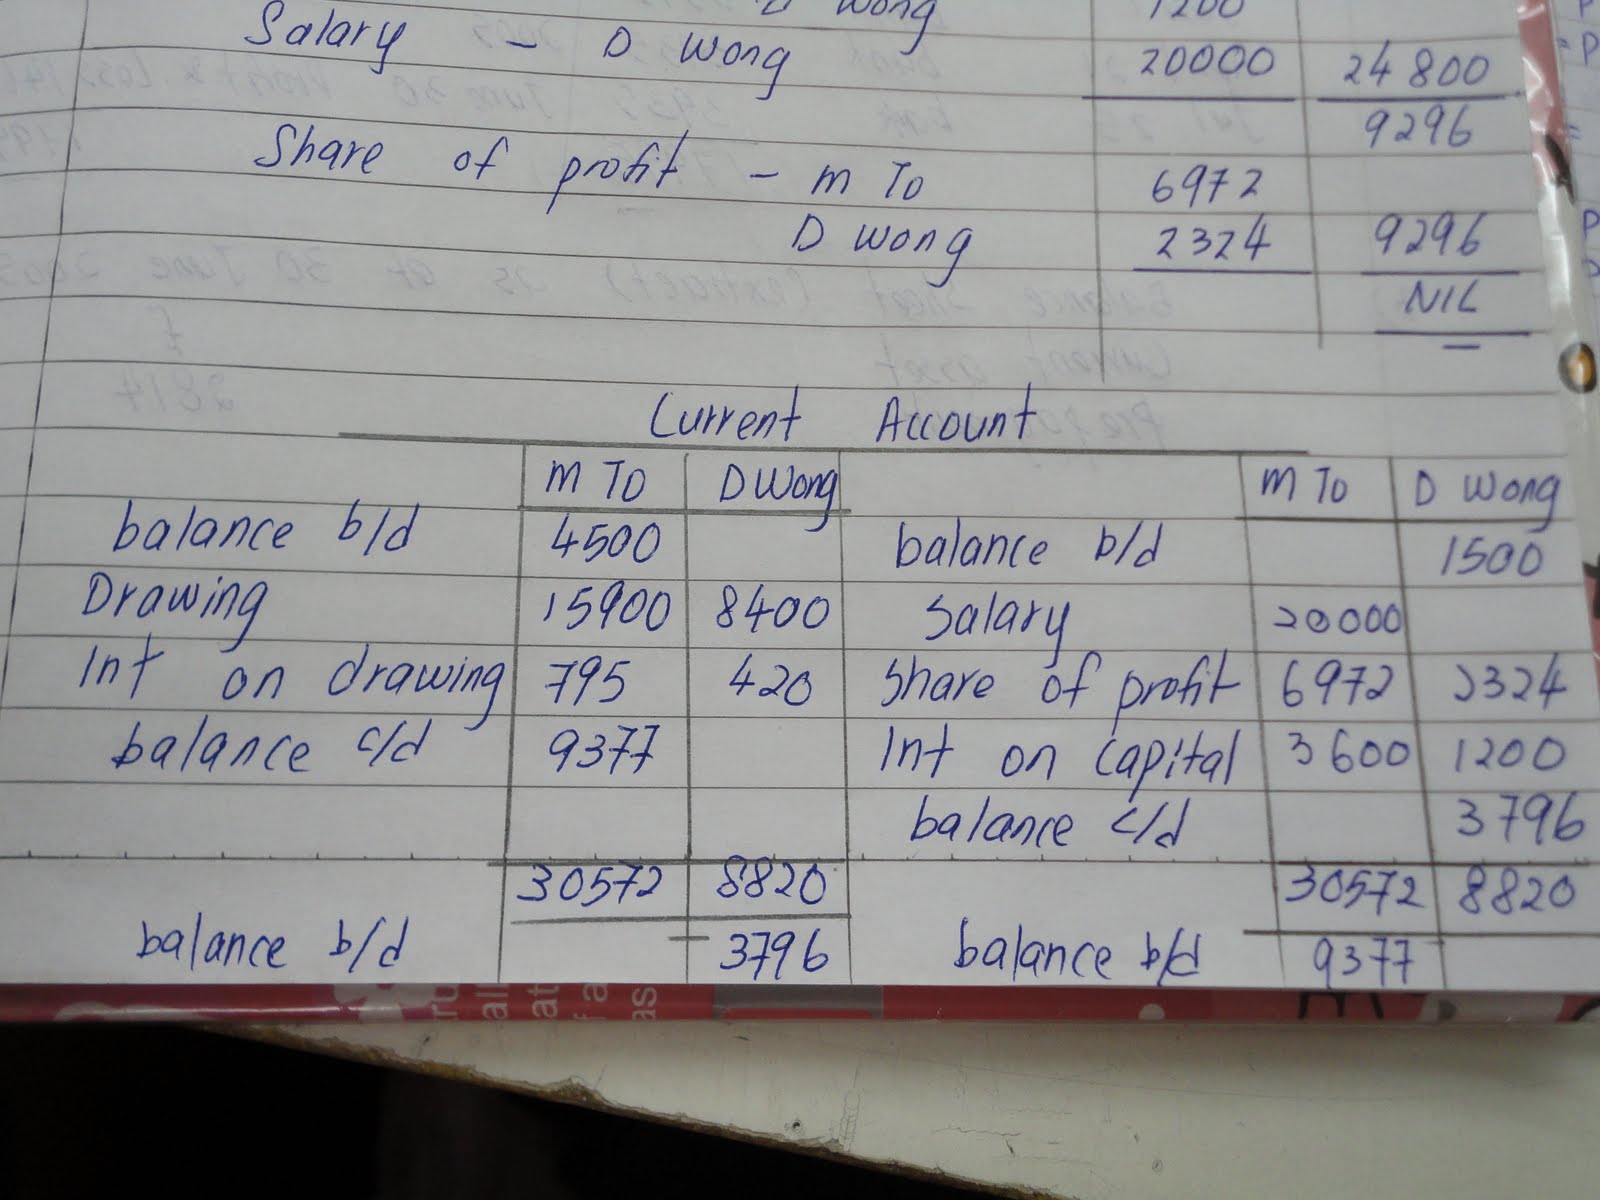 D Wong 1200
Salary - D Wong 20000 24800
9296
Share of profit - m To 6972
D Wong 2324 9296
NIL
Current Account
m To D Wong m To D Wong
balance b/d 4500 balance b/d 1500
Drawing 15900 8400 Salary 20000
Int on drawing 795 420 Share of profit 6972 2324
balance c/d 9377 Int on capital 3600 1200
balance c/d 3796
30572 8820 30572 8820
balance b/d 3796 balance b/d 9377